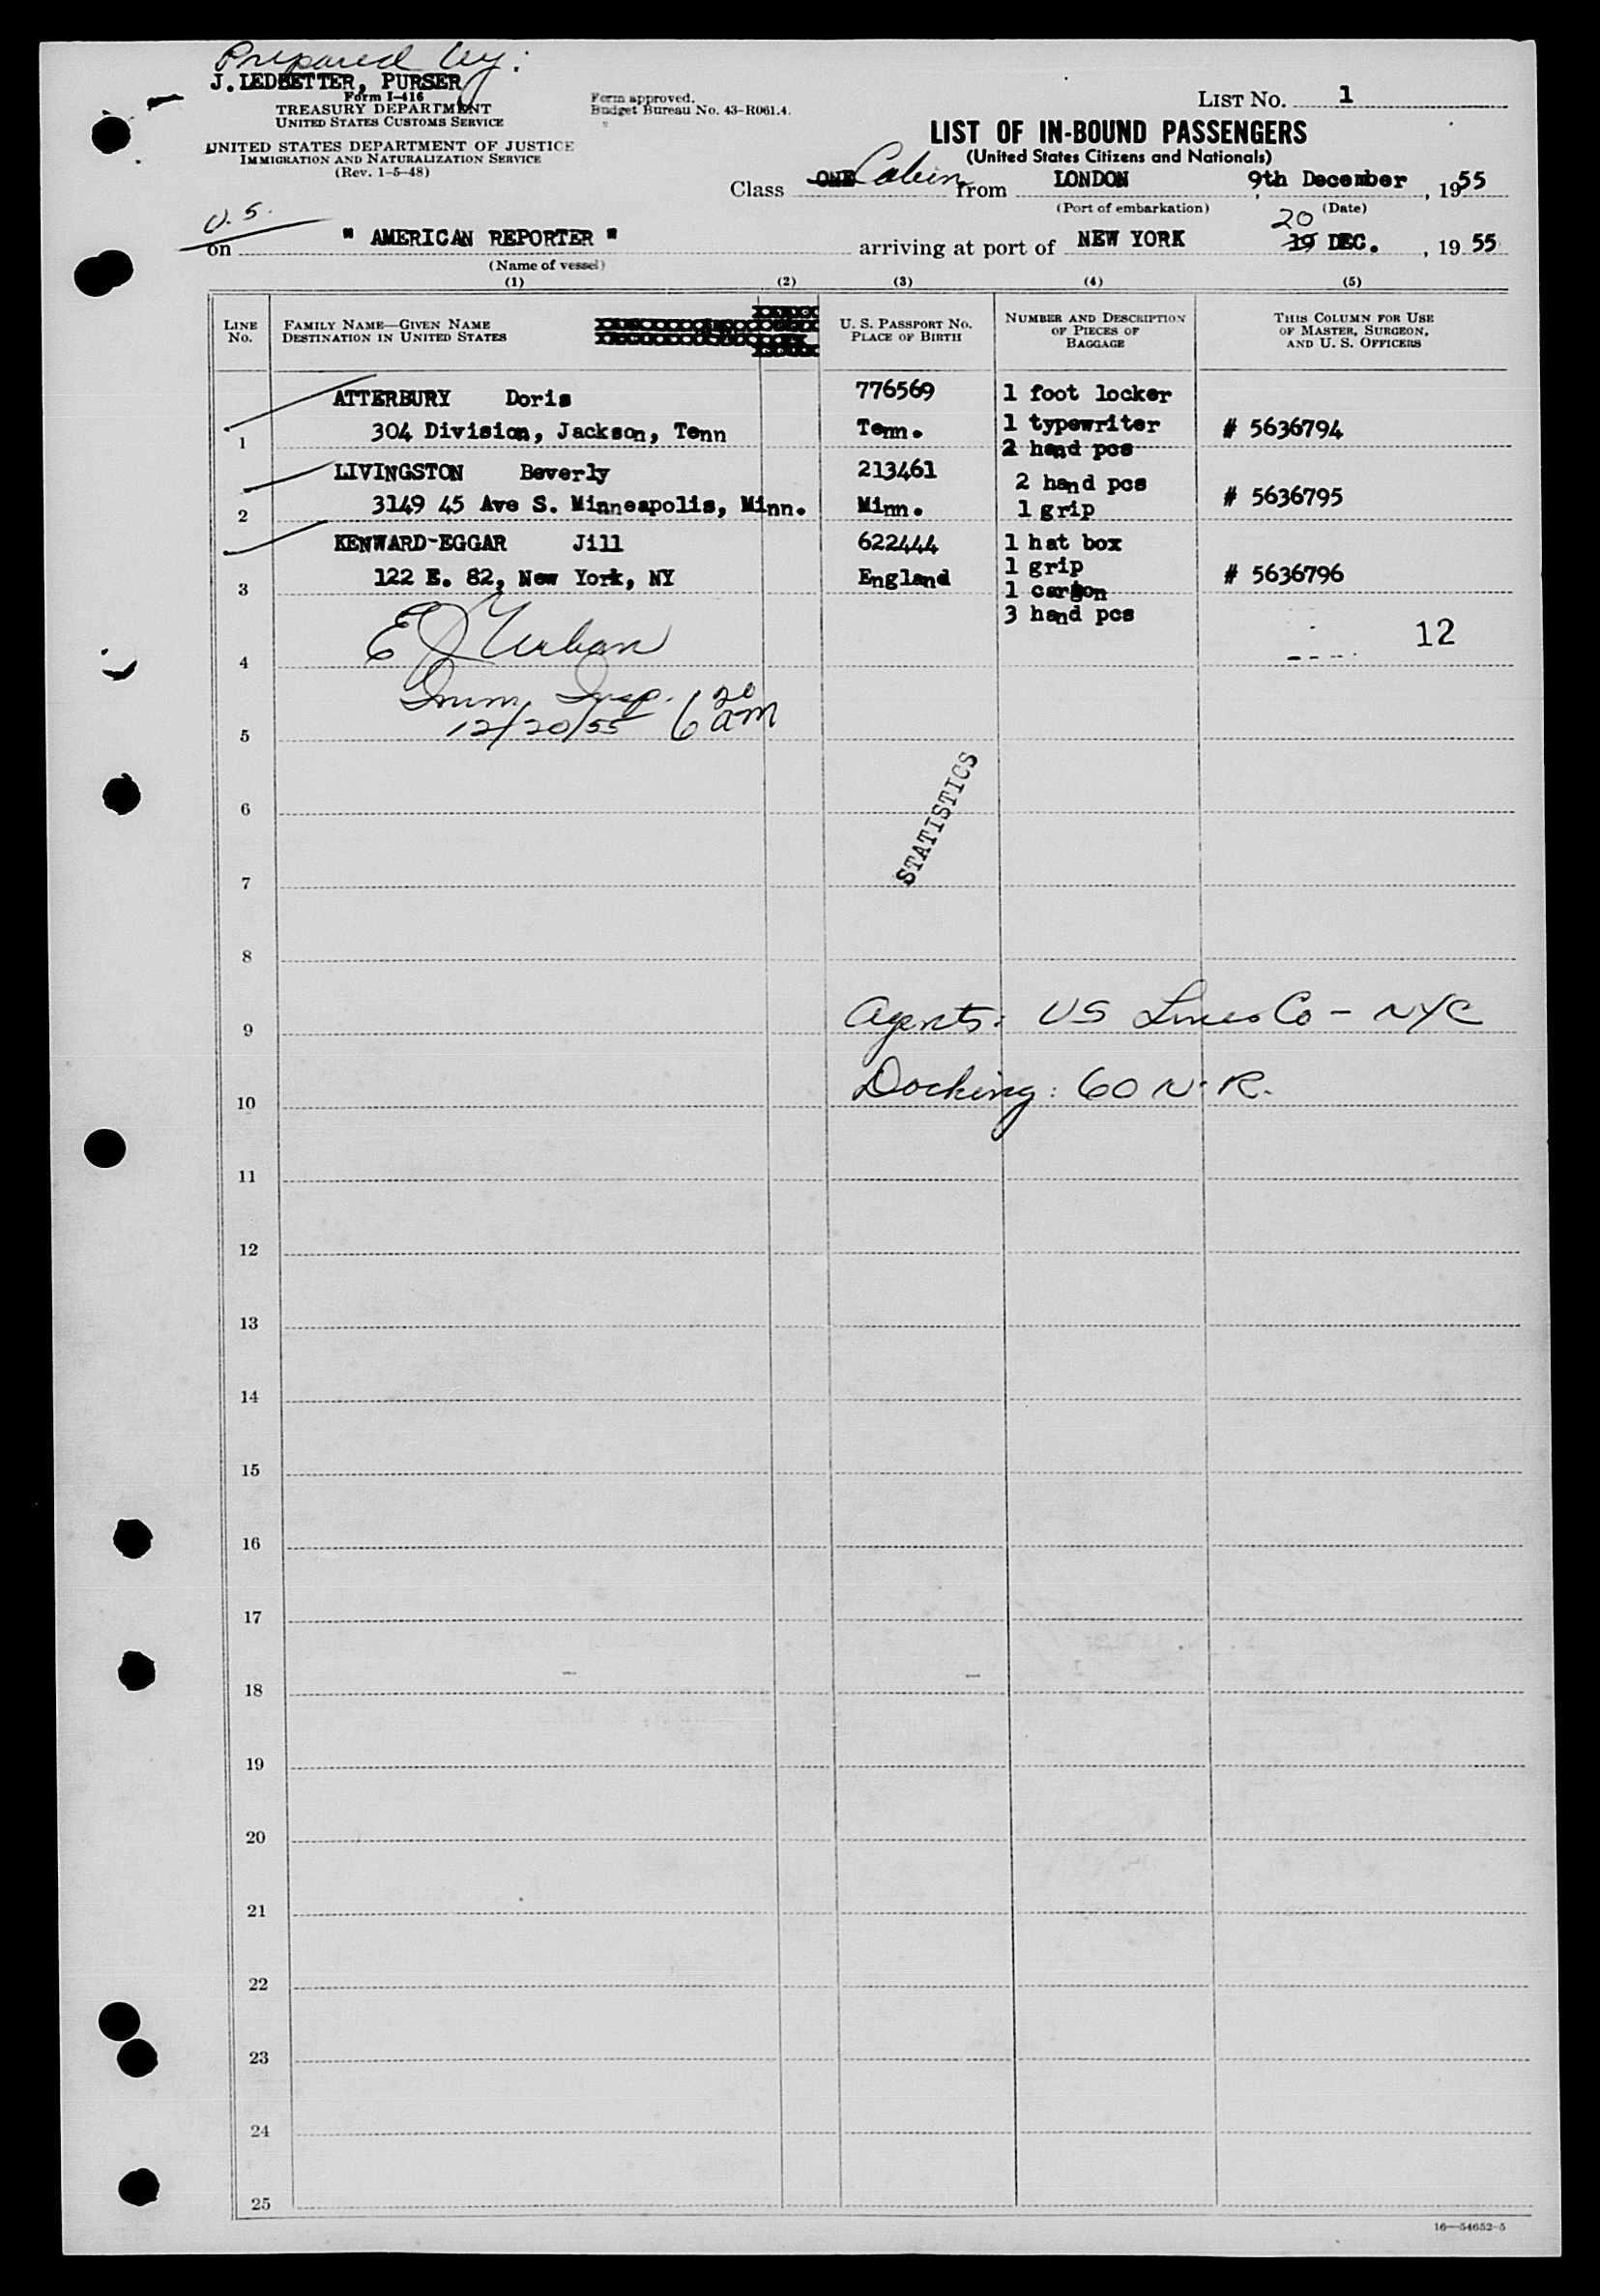 Prepared by:
J. LEDBETTER, PURSER
Form I-416
TREASURY DEPARTMENT
UNITED STATES CUSTOMS SERVICE
UNITED STATES DEPARTMENT OF JUSTICE
IMMIGRATION AND NATURALIZATION SERVICE
(Rev. 1-5-48)
Form approved.
Budget Bureau No. 43-R061.4.
LIST NO. 1
LIST OF IN-BOUND PASSENGERS
(United States Citizens and Nationals)
Class ONE Cabin from LONDON, 9th December, 1955
(Port of embarkation) (Date)
U.S.
on " AMERICAN REPORTER " arriving at port of NEW YORK 19 20 DEC., 1955
(Name of vessel)
(1) (2) (3) (4) (5)
LINE NO.
FAMILY NAME—GIVEN NAME
DESTINATION IN UNITED STATES
U. S. PASSPORT NO.
PLACE OF BIRTH
NUMBER AND DESCRIPTION
OF PIECES OF
BAGGAGE
THIS COLUMN FOR USE
OF MASTER, SURGEON,
AND U. S. OFFICERS
ATTERBURY Doris 776569 1 foot locker
1 304 Division, Jackson, Tenn Tenn. 1 typewriter # 5636794
2 hand pcs
LIVINGSTON Beverly 213461 2 hand pcs
2 3149 45 Ave S. Minneapolis, Minn. Minn. 1 grip # 5636795
KENWARD-EGGAR Jill 622444 1 hat box
3 122 E. 82, New York, NY England 1 grip # 5636796
1 carton
3 hand pcs
12
4 E J Urban
Imm. Insp.
5 12/20/55 6 20 am
STATISTICS
6
7
8
9 Agents: US Lines Co - NYC
10 Docking: 60 N. R.
11
12
13
14
15
16
17
18
19
20
21
22
23
24
25
16—54652-5